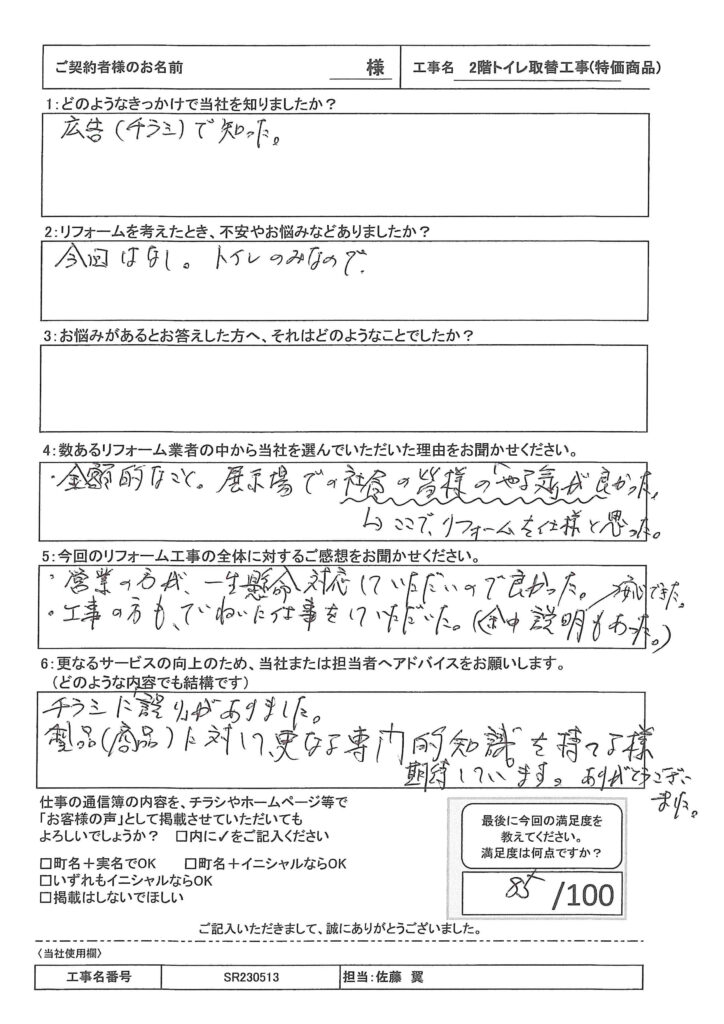 ご契約者様のお名前 様 工事名 2階トイレ取替工事(特価商品)
1:どのようなきっかけで当社を知りましたか?
広告(チラシ)で知った。
2:リフォームを考えたとき、不安やお悩みなどありましたか?
今回はなし。トイレのみなので、
3:お悩みがあるとお答えした方へ、それはどのようなことでしたか?
4:数あるリフォーム業者の中から当社を選んでいただいた理由をお聞かせください。
・金額的なこと。展示場での社員の皆様の「やる気」が良かった。
↳ここで、リフォームを仕様と思った。
5:今回のリフォーム工事の全体に対するご感想をお聞かせください。
・営業の方が、一生懸命対応していただいので良かった。/安心できた。
・工事の方も、ていねいに仕事をしていただいた。(途中説明もあった。)
6:更なるサービスの向上のため、当社または担当者へアドバイスをお願いします。
(どのような内容でも結構です)
チラシに「誤り」がありました。
製品(商品)に対して、更なる専門的知識を持てる様
期待しています。ありがとうござい
ました。
仕事の通信簿の内容を、チラシやホームページ等で
「お客様の声」として掲載させていただいても
よろしいでしょうか? □内に✓をご記入ください
□町名+実名でOK □町名+イニシャルならOK
□いずれもイニシャルならOK
□掲載はしないでほしい
最後に今回の満足度を
教えてください。
満足度は何点ですか?
85/100
ご記入いただきまして、誠にありがとうございました。
〈当社使用欄〉
工事名番号 SR230513 担当:佐藤 翼